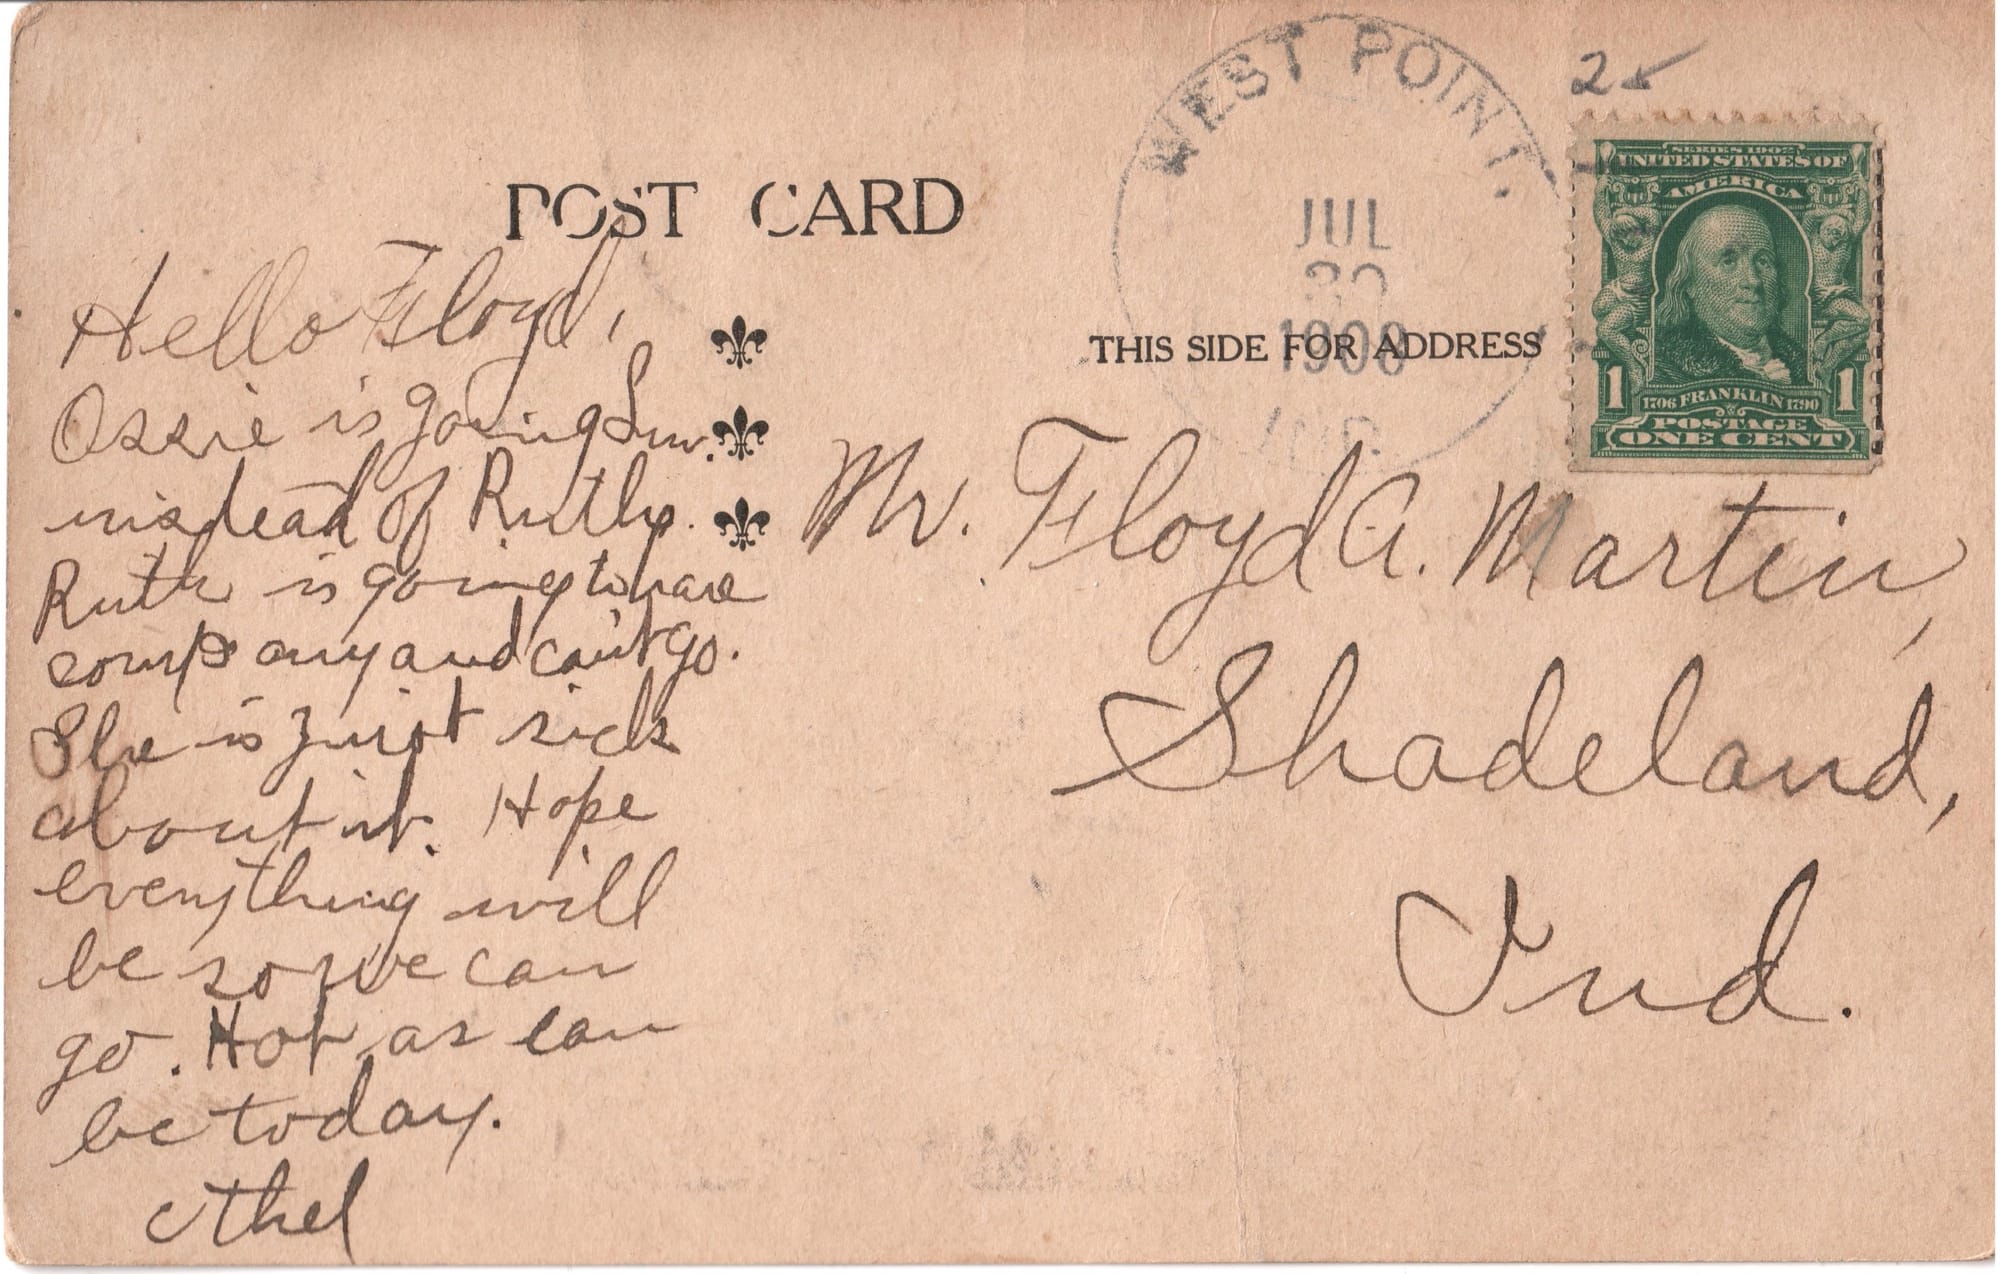 POST CARD
WEST POINT,
JUL
30
190
IND.
2
SERIES 1902
UNITED STATES OF
AMERICA
1 1706 FRANKLIN 1790 1
POSTAGE
ONE CENT
THIS SIDE FOR ADDRESS
Hello Floyd,
Ossie is going Sun.
instead of Ruth.
Ruth is going to have
company and can't go.
She is just sick
about it. Hope
everything will
be so we can
go. Hot as can
be today.
Ethel
Mr. Floyd A. Martin,
Shadeland,
Ind.